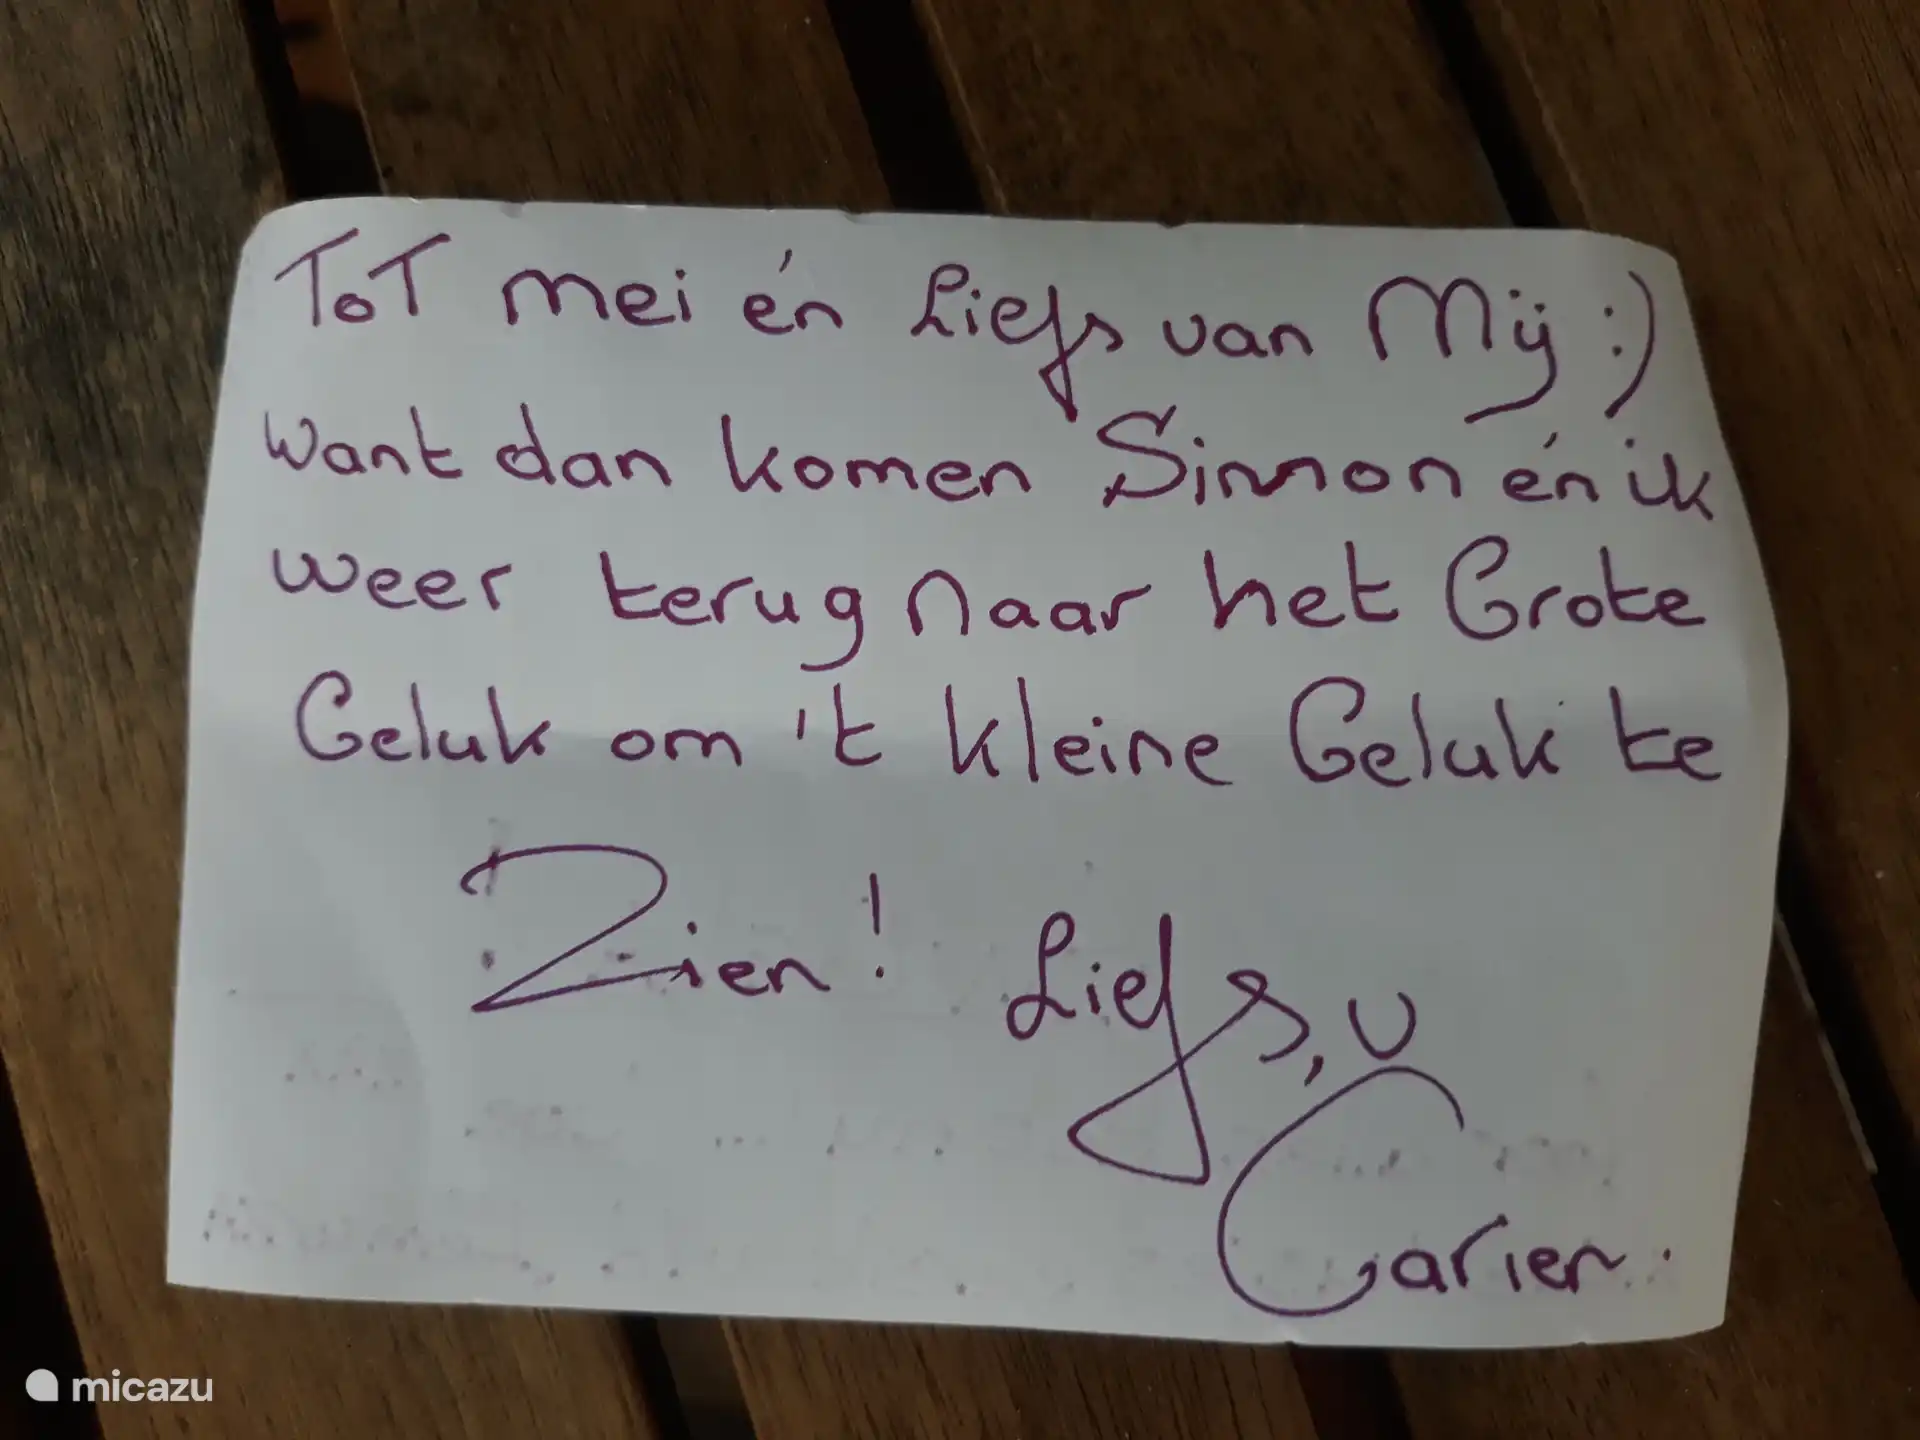 Tot mei én Liefs van Mij :)
Want dan komen Sinnon én ik
weer terug naar het Grote
Geluk om 't kleine Geluk te
Zien! Liefs,
Carien.
micazu